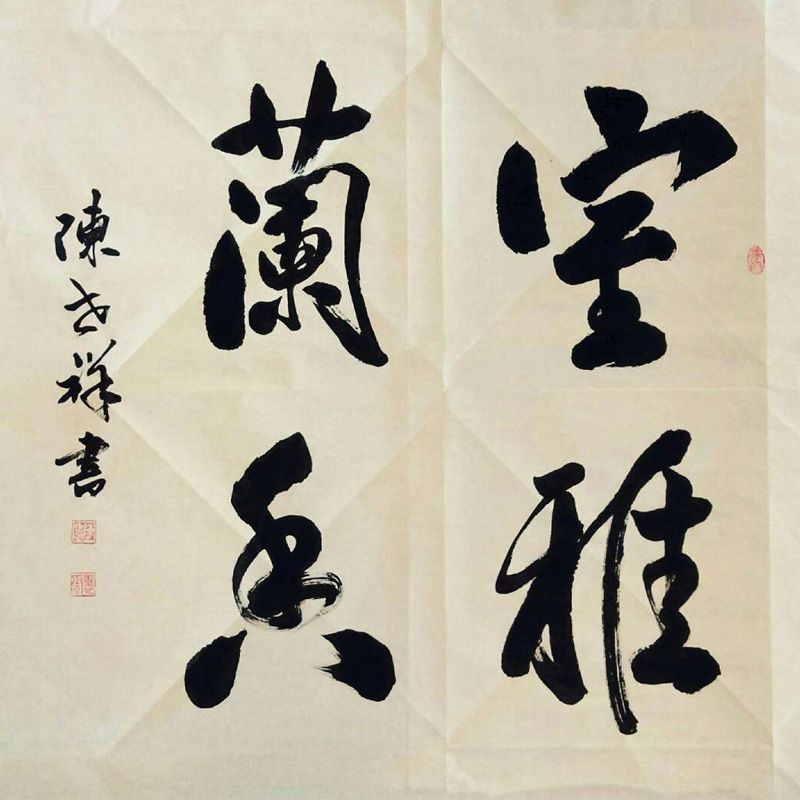 室雅
蘭香
陳世祥書